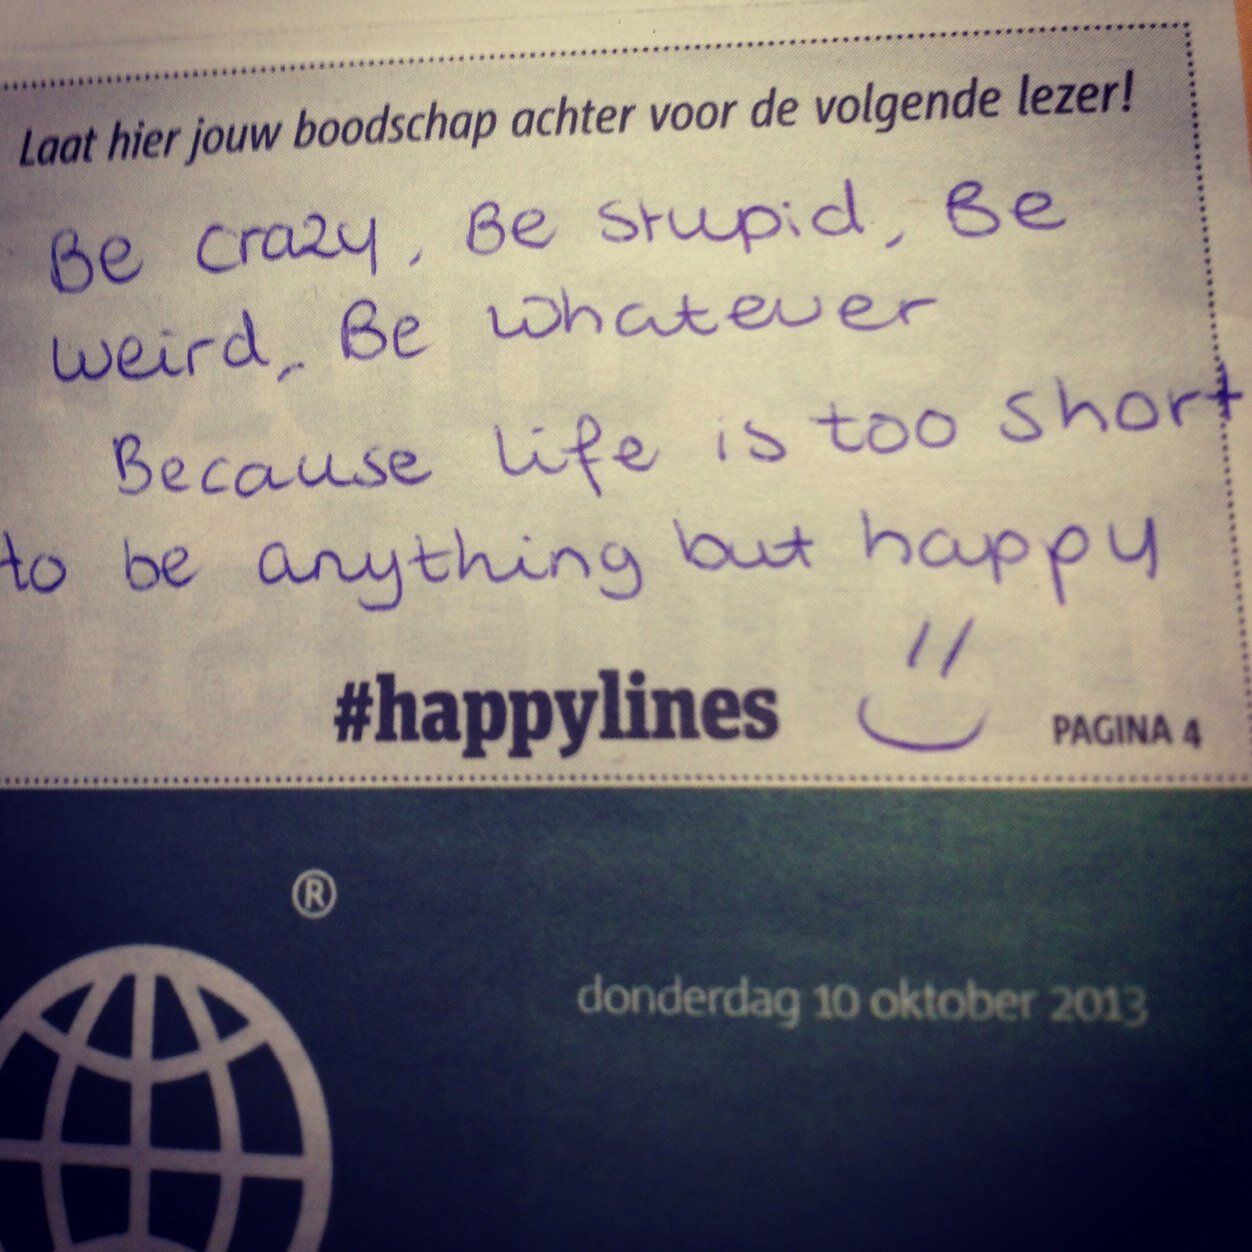 Laat hier jouw boodschap achter voor de volgende lezer!
Be crazy, Be stupid, Be
weird, Be whatever
Because life is too short
to be anything but happy
#happylines
PAGINA 4
®
donderdag 10 oktober 2013